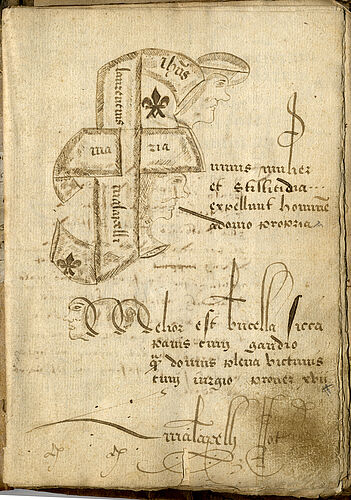 ihūs
laurentius
ma ria
malapelli
umus mulier
et stillicidia
expellunt hominē
a domo propria
Melior est bucella sicca
panis cum gaudio
q̄ domus plena victimis
cum iurgio prouer xvii
malapelli